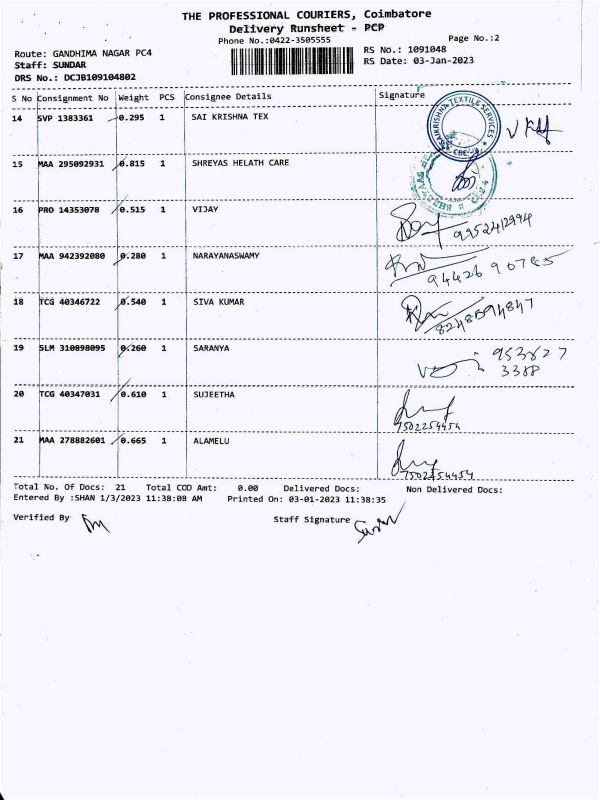 THE PROFESSIONAL COURIERS, Coimbatore
Delivery Runsheet - PCP
Phone No.:0422-3505555
Page No.:2
Route: GANDHIMA NAGAR PC4
RS No.: 1091048
Staff: SUNDAR
RS Date: 03-Jan-2023
DRS No.: DCJB109104802
S No Consignment No Weight PCS Consignee Details Signature
14 SVP 1383361 0.295 1 SAI KRISHNA TEX
SAIKRISHNA TEXTILE SERVICES
15 MAA 295092931 0.815 1 SHREYAS HELATH CARE
16 PRO 14353078 0.515 1 VIJAY
9952412994
17 MAA 942392080 0.280 1 NARAYANASWAMY
94426 90785
18 TCG 40346722 0.540 1 SIVA KUMAR
8248594847
19 SLM 310898095 0.260 1 SARANYA
953827
3388
20 TCG 40347031 0.610 1 SUJEETHA
7502254454
21 MAA 278882601 0.665 1 ALAMELU
7502254454
Total No. Of Docs: 21 Total COD Amt: 0.00 Delivered Docs: Non Delivered Docs:
Entered By :SHAN 1/3/2023 11:38:08 AM Printed On: 03-01-2023 11:38:35
Verified By
Staff Signature Sundar